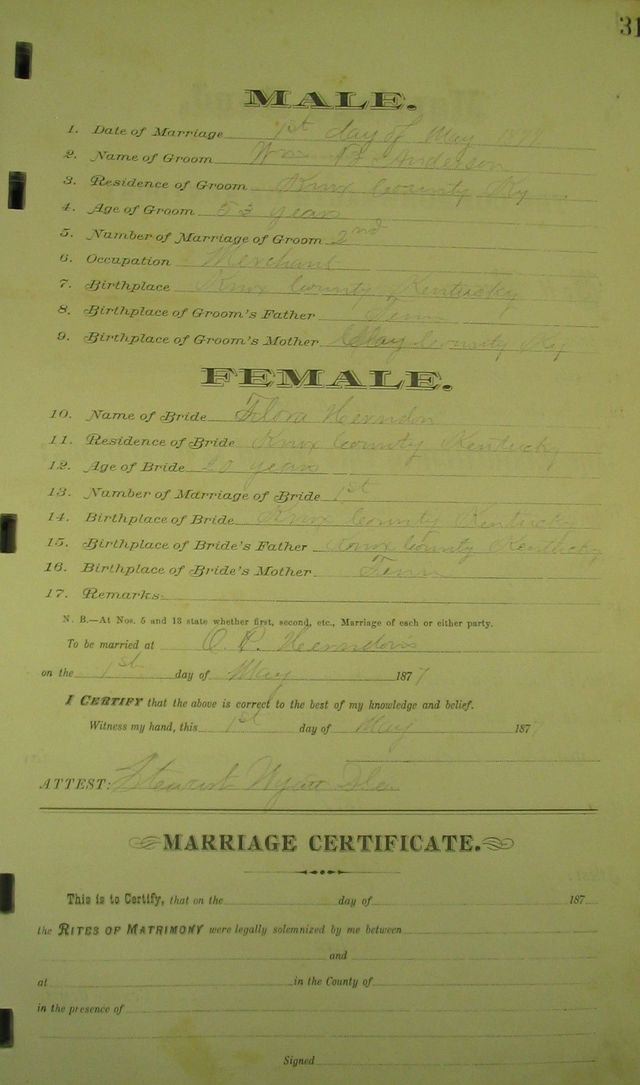 31
MALE.
1. Date of Marriage 1st day of May 1877
2. Name of Groom Wm Anderson
3. Residence of Groom Knox County Ky
4. Age of Groom 53 years
5. Number of Marriage of Groom 2nd
6. Occupation Merchant
7. Birthplace Knox County Kentucky
8. Birthplace of Groom's Father Tenn
9. Birthplace of Groom's Mother Clay County Ky
FEMALE.
10. Name of Bride Flora Herndon
11. Residence of Bride Knox County Kentucky
12. Age of Bride 20 years
13. Number of Marriage of Bride 1st
14. Birthplace of Bride Knox County Kentucky
15. Birthplace of Bride's Father Knox County Kentucky
16. Birthplace of Bride's Mother Tenn
17. Remarks
N. B.—At Nos. 5 and 13 state whether first, second, etc., Marriage of each or either party.
To be married at O. P. Herndon's
on the 1st day of May 1877
I CERTIFY that the above is correct to the best of my knowledge and belief.
Witness my hand, this 1st day of May 1877
ATTEST: Stewart Wyatt
MARRIAGE CERTIFICATE.
This is to Certify, that on the day of 187
the RITES OF MATRIMONY were legally solemnized by me between
and
at in the County of
in the presence of
Signed